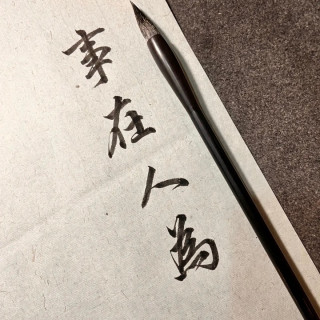 事在人為